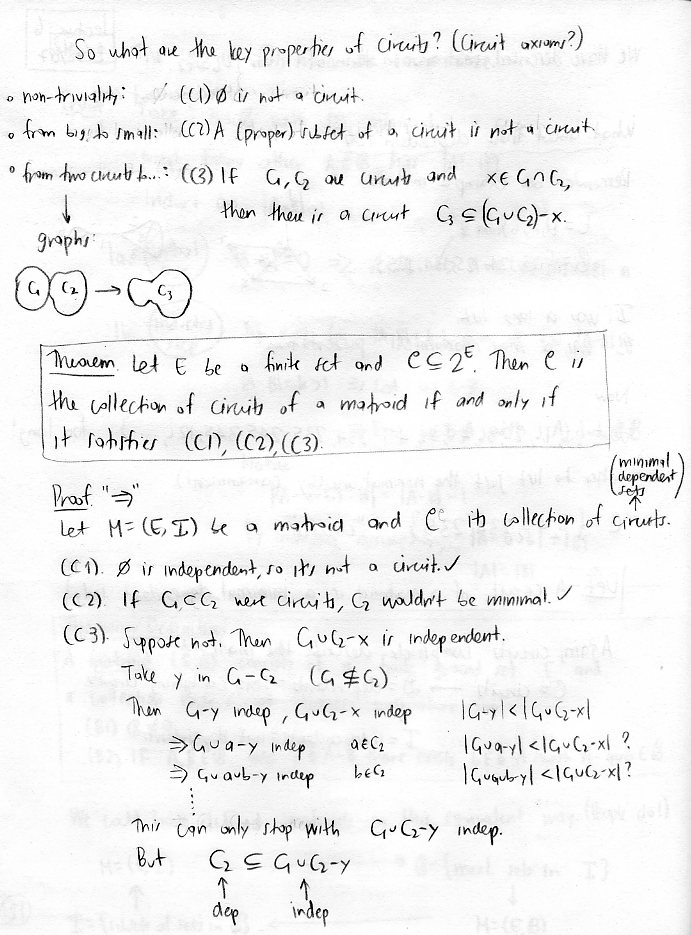 So what are the key properties of circuits? (Circuit axioms?)
• non-triviality: (C1) ∅ is not a circuit.
• from big to small: (C2) A (proper) subset of a circuit is not a circuit
• from two circuits to...: (C3) If C₁, C₂ are circuits and x ∈ C₁∩C₂,
then there is a circuit C₃ ⊆ (C₁∪C₂)-x.
↓
graphs:
C₁ C₂ → C₃
Theorem. Let E be a finite set and C ⊆ 2^E. Then C is
the collection of circuits of a matroid if and only if
it satisfies (C1), (C2), (C3).
(minimal
dependent
sets)
Proof. "⇒"
Let M=(E,I) be a matroid and C its collection of circuits.
(C1). ∅ is independent, so it's not a circuit. ✓
(C2). If C₁⊂C₂ were circuits, C₂ wouldn't be minimal. ✓
(C3). Suppose not. Then C₁∪C₂-x is independent.
Take y in C₁-C₂ (C₁⊄C₂)
Then C₁-y indep, C₁∪C₂-x indep |C₁-y|<|C₁∪C₂-x|
⇒ C₁∪a-y indep a∈C₂ |C₁∪a-y|<|C₁∪C₂-x| ?
⇒ C₁∪a∪b-y indep b∈C₂ |C₁∪a∪b-y|<|C₁∪C₂-x| ?
⋮
This can only stop with C₁∪C₂-y indep.
But C₂ ⊆ C₁∪C₂-y
↑ ↑
dep indep